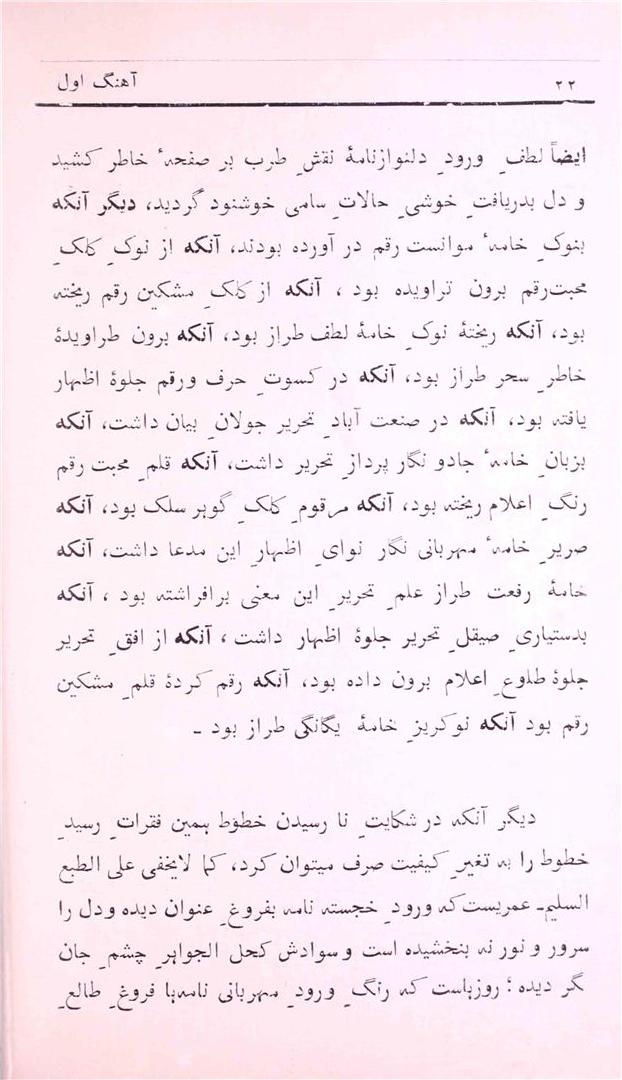 ۲۲ آهنگ اول
ایضاً لطفِ ورودِ دلنوازنامۂ نقشِ طرب بر صفحہٴ خاطر کشید
و دل بدریافتِ خوشیِ حالاتِ سامی خوشنود گردید، دیگر آنکه
بنوکِ خامہٴ موانست رقم در آورده بودند، آنکه از نوکِ کلکِ
محبت‌رقم برون تراویده بود ، آنکه از کلکِ مشکین رقم ریخته
بود، آنکه ریختۂ نوکِ خامۂ لطف طراز بود، آنکه برون طراویدۂ
خاطرِ سحر طراز بود، آنکه در کسوتِ حرف ورقم جلوۂ اظهار
یافته بود، آنکه در صنعت آبادِ تحریر جولانِ بیان داشت، آنکه
بزبانِ خامہٴ جادو نگار پردازِ تحریر داشت، آنکه قلمِ محبت رقم
رنگِ اعلام ریخته بود، آنکه مرقومِ کلکِ گوہر سلک بود، آنکه
صریرِ خامہٴ مہربانی نگار نوایِ اظهارِ این مدعا داشت، آنکه
خامۂ رفعت طراز علمِ تحریرِ این معنی برافراشته بود ، آنکه
بدستیاریِ صیقلِ تحریر جلوۂ اظهار داشت ، آنکه از افقِ تحریر
جلوۂ طلوعِ اعلام برون داده بود، آنکه رقم کردۂ قلمِ مشکین
رقم بود آنکه نوکریزِ خامۂ یگانگی طراز بود ـ
دیگر آنکه در شکایتِ نا رسیدن خطوط ہمین فقراتِ رسیدِ
خطوط را به تغیرِ کیفیت صرف میتوان کرد، کما لایخفی علی الطبع
السلیم۔ عمریست که ورودِ خجسته نامه بفروغِ عنوان دیده ودل را
سرور و نور نه بنخشیده است و سوادش کحل الجواہرِ چشمِ جان
نگر دیده ؛ روزہاست که رنگِ ورودِ مہربانی نامہ‌ہا فروغِ طالعِ